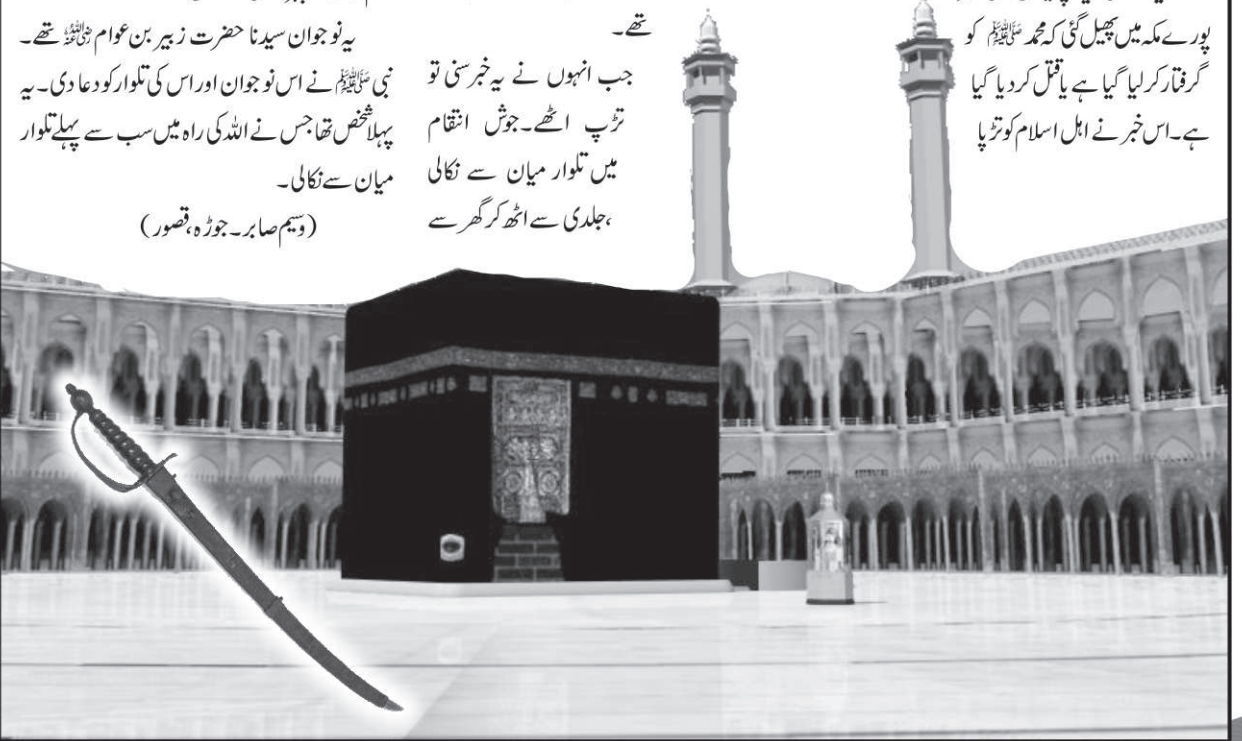 پورے مکہ میں پھیل گئی کہ محمد ﷺ کو
گرفتار کرلیا گیا ہے یا قتل کردیا گیا
ہے۔اس خبر نے اہل اسلام کو تڑپا
تھے۔
جب انہوں نے یہ خبر سنی تو
تڑپ اٹھے۔جوش انتقام
میں تلوار میان سے نکالی
،جلدی سے اٹھ کر گھر سے
یہ نوجوان سیدنا حضرت زبیر بن عوام رضی اللہ عنہ تھے۔
نبی ﷺ نے اس نوجوان اور اس کی تلوار کو دعا دی۔یہ
پہلا شخص تھا جس نے اللہ کی راہ میں سب سے پہلے تلوار
میان سے نکالی۔
(وسیم صابر۔جوڑہ،قصور)